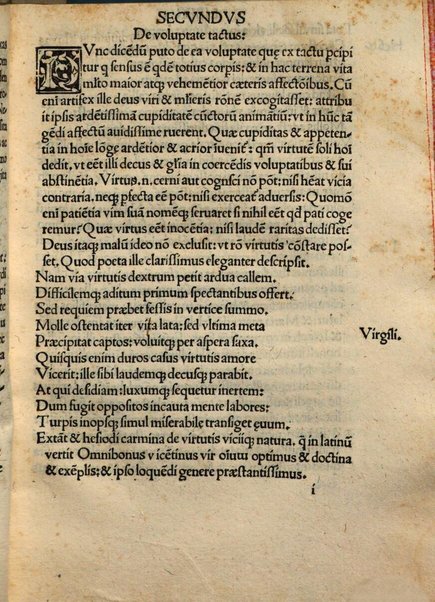 SECVNDVS
De voluptate tactus:
NVnc dicēdū puto de ea voluptate quę ex tactu pcipi
tur q sensus ē qdē totius corpis: & in hac terrena vita
mľto maior atqꝫ vehemētior cæteris affectōibus. Cū
eni artifex ille deus viri & mľieris rōnē excogitasset: attribu
it ipsis ardētissimā cupiditatē cūctorū animātiū: vt in hūc tā
gēdi affectū auidissime ruerent. Quæ cupiditas & appeten-
tia in hoīe lōge ardētior & acrior īuenit᷑: qm̄ virtutē soli hoī
dedit, vt eēt illi decus & glīa in coercēdis voluptatibus & sui
abstinētia. Virtus .n. cerni aut cognsci nō pōt: nisi heat vicia
contraria. neqꝫ pfecta eē pōt: nisi exerceat᷑ aduersis: Quomō
eni patiētia vim suā nomēqꝫ seruaret si nihil eēt qd pati coge
remur? Quæ virtus eēt inocētia: nisi laudē raritas dedisset?
Deus itaqꝫ malū ideo nō exclusit: vt rō virtutis cōstare pos-
set. Quod poeta ille clarissimus eleganter descripsit.
Nam via virtutis dextrum petit ardua callem.
Difficilemqꝫ aditum primum spectantibus offert.
Sed requiem præbet fessis in vertice summo.
Molle ostentat iter via lata: sed vltima meta
Virgili.
Præcipitat captos: voluitqꝫ per aspera saxa.
Quisquis enim duros casus virtutis amore
Vicerit: ille sibi laudemqꝫ decusqꝫ parabit.
At qui desidiam: luxumqꝫ sequetur inertem:
Dum fugit oppositos incauta mente labores:
Turpis inopsqꝫ simul miserabile transiget ęuum.
Extāt & hesiodi carmina de virtutis viciiqꝫ natura. q̄ in latinū
vertit Omnibonus vicētinus vir oīum optimus & doctina
& exēplis: & ipso loquēdi genere præstantissimus.
i